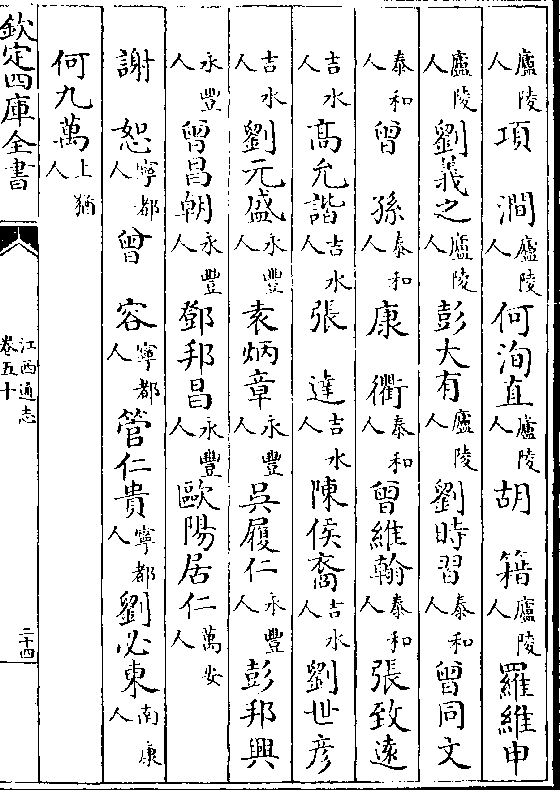 廬陵人項澗廬陵人何洵直廬陵人胡籍廬陵人羅維申
廬陵人劉義之廬陵人彭大有廬陵人劉時習泰和人曾同文
泰和人曾孫泰和人康衢泰和人曾維翰泰和人張致遠
吉水人高允諧吉水人張達吉水人陳侯裔吉水人劉世彦
吉水人劉元盛永豐人袁炳章永豐人吳履仁永豐人彭邦興
永豐人曾昌朝永豐人鄧邦昌永豐人歐陽居仁萬安人
謝恕寧都人曾容寧都人管仁貴寧都人劉必東南康人
何九萬上猶人
欽定四庫全書
江西通志
卷五十
二十四